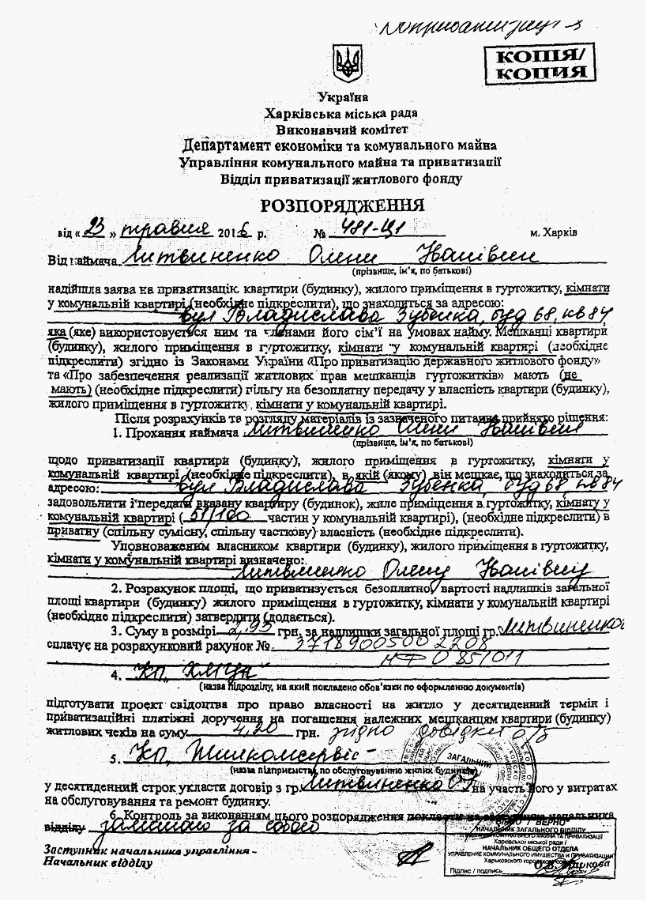 КОПІЯ/
КОПИЯ
Україна
Харківська міська рада
Виконавчий комітет
Департамент економіки та комунального майна
Управління комунального майна та приватизації
Відділ приватизації житлового фонду
РОЗПОРЯДЖЕННЯ
від « 23 » травня 2016 р. № 481-Ц1 м. Харків
Від наймача Литвиненко Олени
(прізвище, ім'я, по батькові)
надійшла заява на приватизацію квартири (будинку), жилого приміщення в гуртожитку, кімнати
у комунальній квартирі (необхідне підкреслити), що знаходиться за адресою:
вул Владислава Зубенка, буд 68, кв 84
яка (яке) використовується ним та членами його сім'ї на умовах найму. Мешканці квартири
(будинку), жилого приміщення в гуртожитку, кімнати у комунальній квартирі (необхідне
підкреслити) згідно із Законами України «Про приватизацію державного житлового фонду»
та «Про забезпечення реалізації житлових прав мешканців гуртожитків» мають (не
мають) (необхідне підкреслити) пільгу на безоплатну передачу у власність квартири (будинку),
жилого приміщення в гуртожитку, кімнати у комунальній квартирі.
Після розрахунків та розгляду матеріалів із зазначеного питання прийнято рішення:
1. Прохання наймача Литвиненко Олени
(прізвище, ім'я, по батькові)
щодо приватизації квартири (будинку), жилого приміщення в гуртожитку, кімнати у
комунальній квартирі (необхідне підкреслити), в якій (якому) він мешкає, що знаходиться за
адресою: вул Владислава Зубенка, буд 68 кв 84
задовольнити і передати вказану квартиру (будинок), жиле приміщення в гуртожитку, кімнату у
комунальній квартирі (51/100 частин у комунальній квартирі), (необхідне підкреслити) в
приватну (спільну сумісну, спільну часткову) власність (необхідне підкреслити).
Уповноваженим власником квартири (будинку), жилого приміщення в гуртожитку,
кімнати у комунальній квартирі визначено:
Литвиненко Олену
2. Розрахунок площі, що приватизується безоплатно, вартості надлишків загальної
площі квартири (будинку) жилого приміщення в гуртожитку, кімнати у комунальній квартирі
(необхідне підкреслити) затвердити (додається).
3. Суму в розмірі 2,95 грн. за надлишки загальної площі гр. Литвиненко
сплачує на розрахунковий рахунок № 37189005002208
МФО 851011
4. КП
(назва підрозділу, на який покладено обов'язки по оформленню документів)
підготувати проект свідоцтва про право власності на житло у десятиденний термін і
приватизаційні платіжні доручення на погашення належних мешканцям квартири (будинку)
житлових чеків на суму 4,20 грн. згідно довідки
5. КП Жилкомсервіс
(назва підприємства, по обслуговуванню жилих будинків)
у десятиденний строк укласти договір з гр. Литвиненко О на участь його у витратах
на обслуговування та ремонт будинку.
6. Контроль за виконанням цього розпорядження покласти на начальника
відділу залишаю за собою
ЗАГАЛЬНИЙ
Заступник начальника управління -
Начальник відділу
ВЕРНО
НАЧАЛЬНИК ЗАГАЛЬНОГО ВІДДІЛУ
УПРАВЛІННЯ КОМУНАЛЬНОГО МАЙНА ТА ПРИВАТИЗАЦІЇ
Харківської міської ради /
НАЧАЛЬНИК ОБЩЕГО ОТДЕЛА
УПРАВЛЕНИЕ КОММУНАЛЬНОГО ИМУЩЕСТВА И ПРИВАТИЗАЦИИ
Харьковского
Підпис / подпись